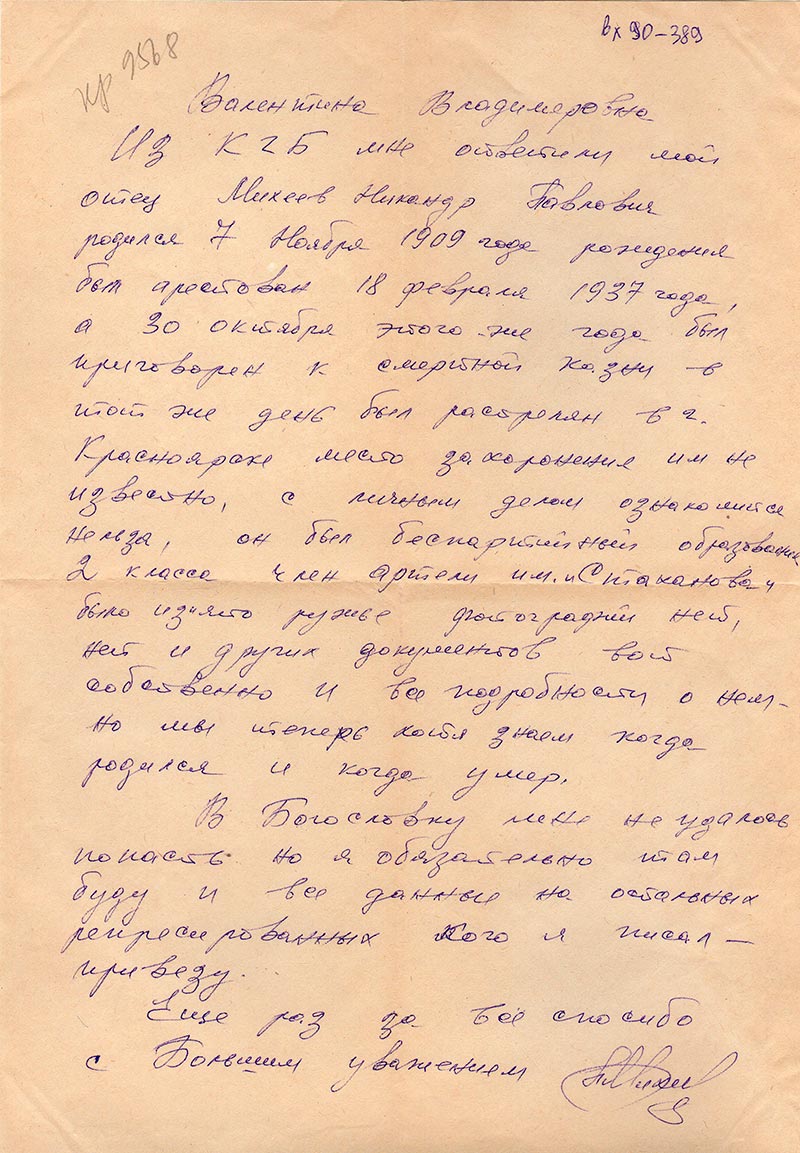 вх 90-389
кр 9568
Валентина Владимеровна
Из КГБ мне ответили мой
отец Михеев Никандр Павлович
родился 7 Ноября 1909 года рождения
был арестован 18 февраля 1937 года,
а 30 октября этого же года был
приговорен к смертной казни в
тот же день был растрелян в г.
Красноярске место захоронения им не
известно, с личным делом ознакомится
нельзя, он был беспартийный образование
2 класса член артели им. "Стаханова"
было изъято ружье фотографий нет,
нет и других документов вот
собственно и все подробности о нем-
но мы теперь хотя знаем когда
родился и когда умер.
В Богословку мне не удалось
попасть но я обязательно там
буду и все данные на остальных
репресированных кого я писал -
привезу.
Еще раз за всё спасибо
с Большим уважением